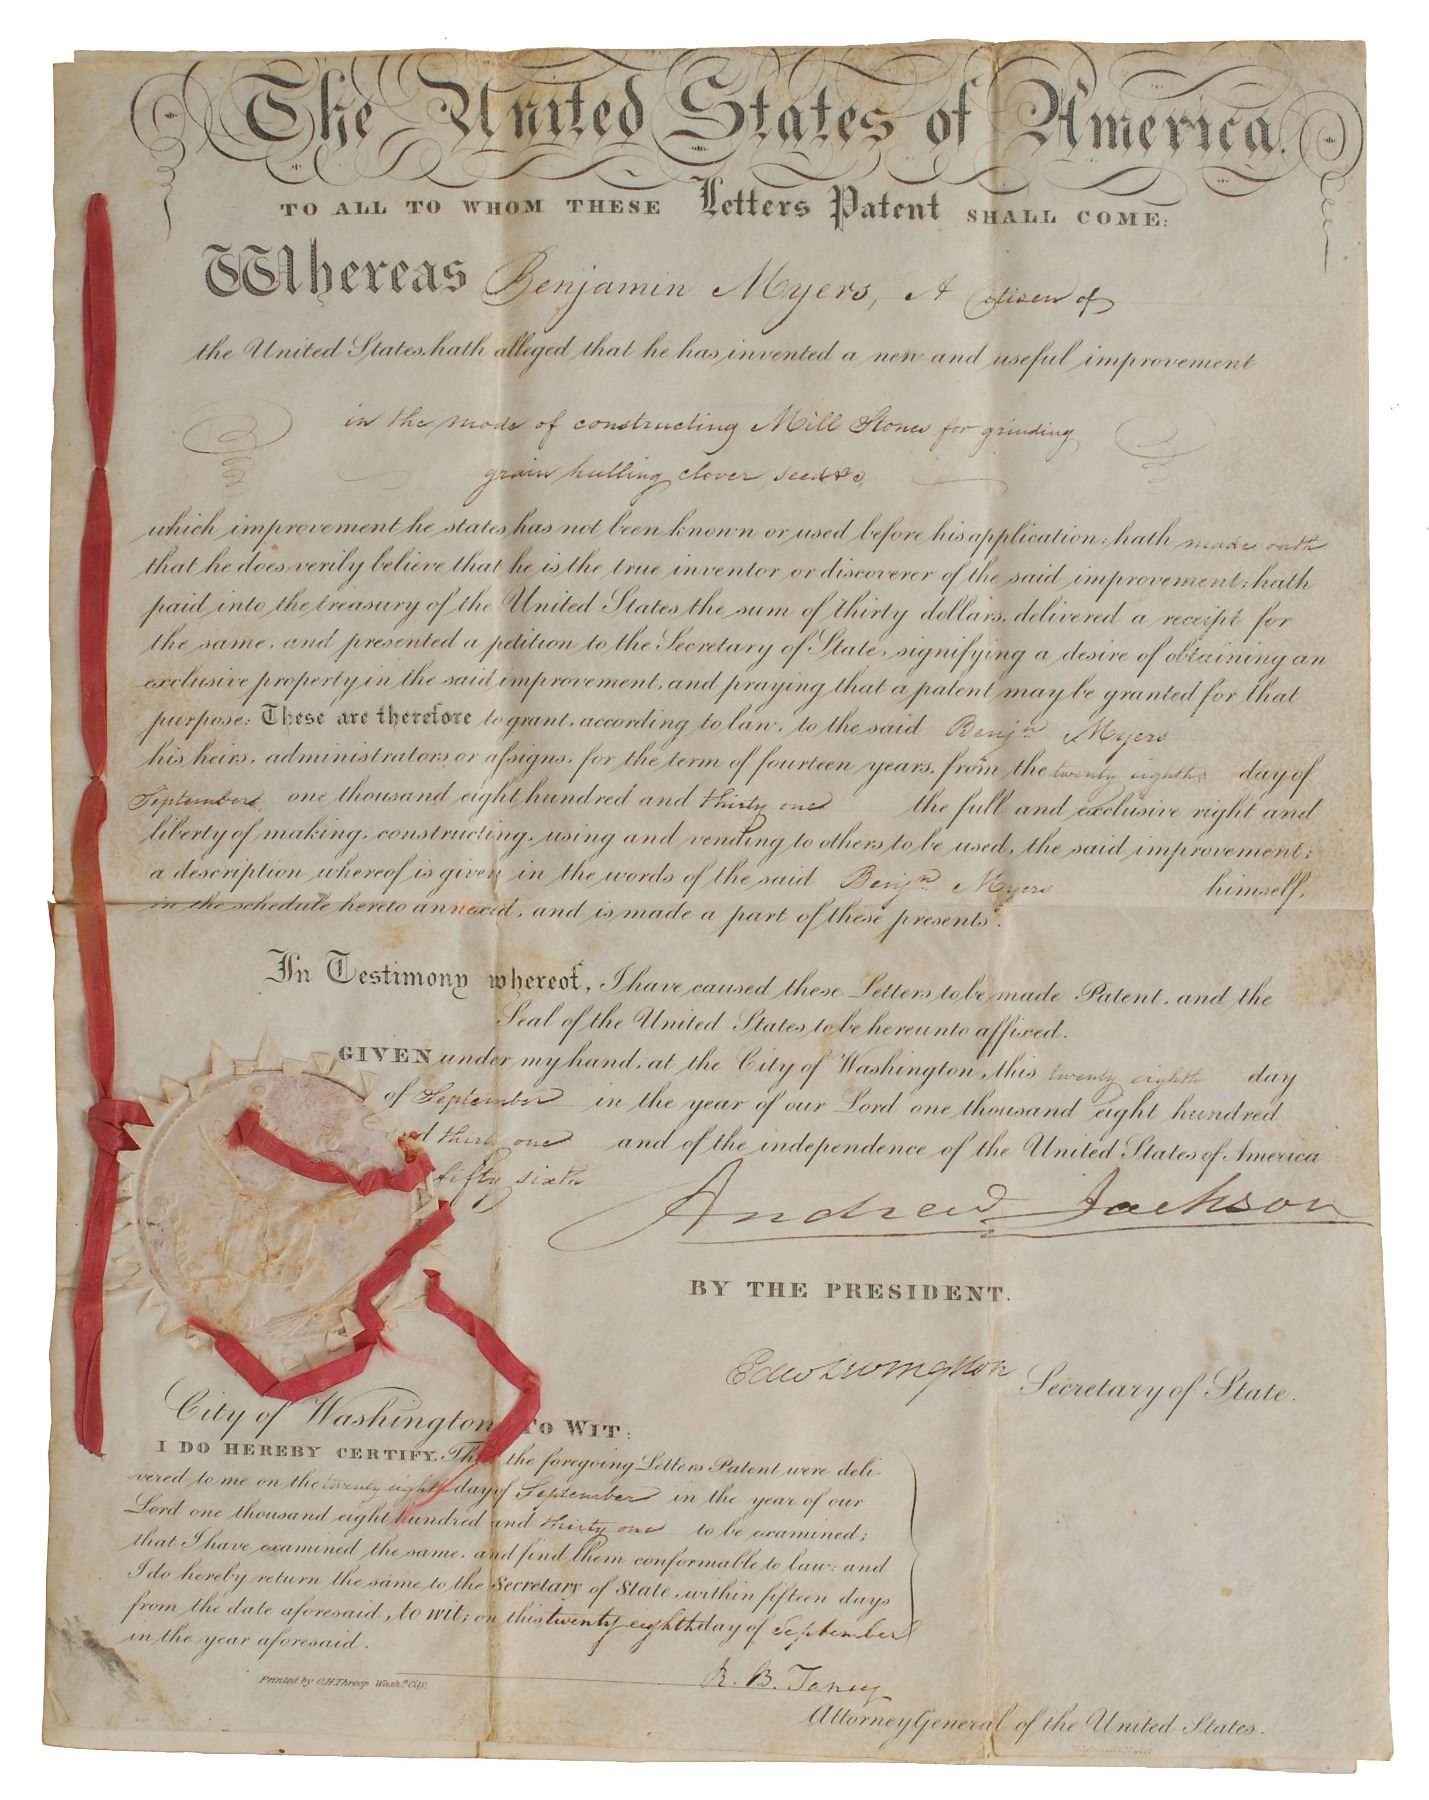 The United States of America.
TO ALL TO WHOM THESE Letters Patent SHALL COME:
Whereas Benjamin Myers, A Citizen of
the United States, hath alleged that he has invented a new and useful improvement
in the mode of constructing Mill Stones for grinding
grain hulling clover seed &c
which improvement he states has not been known or used before his application; hath made oath
that he does verily believe that he is the true inventor or discoverer of the said improvement; hath
paid into the treasury of the United States the sum of thirty dollars, delivered a receipt for
the same, and presented a petition to the Secretary of State, signifying a desire of obtaining an
exclusive property in the said improvement, and praying that a patent may be granted for that
purpose: These are therefore to grant, according to law, to the said Benjn Myers
his heirs, administrators or assigns, for the term of fourteen years, from the twenty eighth day of
September one thousand eight hundred and thirty one the full and exclusive right and
liberty of making, constructing, using and vending to others to be used, the said improvement;
a description whereof is given in the words of the said Benjn Myers himself,
in the schedule hereto annexed, and is made a part of these presents.
In Testimony whereof, I have caused these Letters to be made Patent, and the
Seal of the United States to be hereunto affixed.
GIVEN under my hand, at the City of Washington, this twenty eighth day
of September in the year of our Lord one thousand eight hundred
thirty one and of the independence of the United States of America
fifty sixth
Andrew Jackson
BY THE PRESIDENT.
Edw Livingston Secretary of State.
City of Washington TO WIT:
I DO HEREBY CERTIFY, That the foregoing Letters Patent were deli-
vered to me on the twenty eighth day of September in the year of our
Lord one thousand eight hundred and thirty one to be examined;
that I have examined the same, and find them conformable to law: and
I do hereby return the same to the Secretary of State, within fifteen days
from the date aforesaid, to wit; on this twenty eighth day of September
in the year aforesaid.
Printed by O.H. Throop Washn. City.
R. B. Taney
Attorney General of the United States.